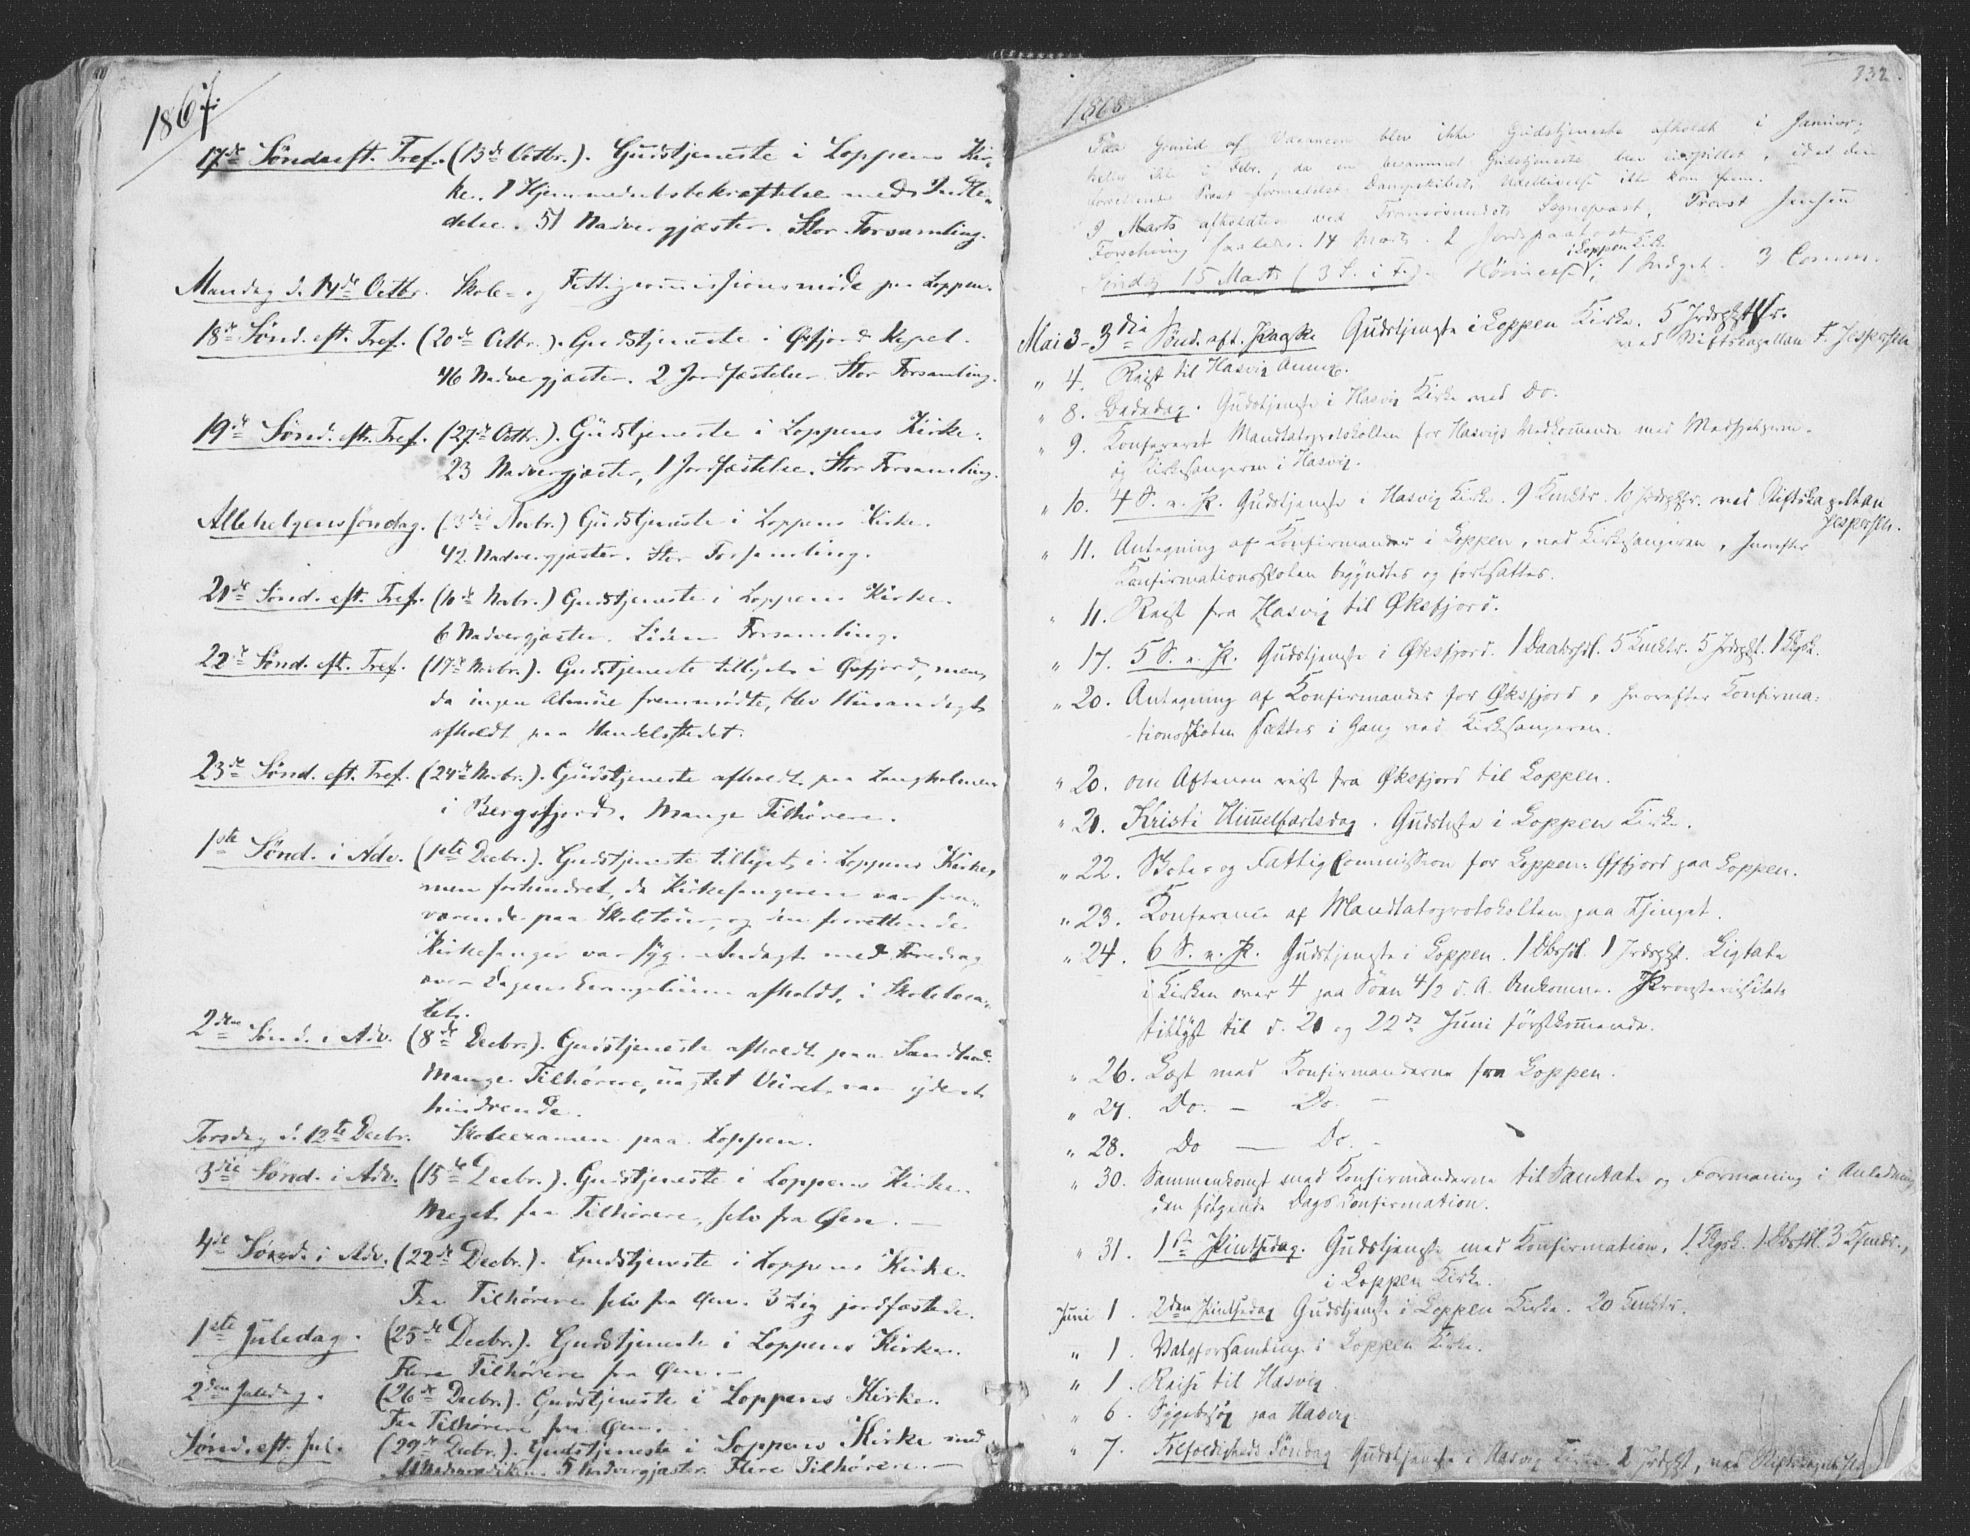 1867.
17de Søndaeft. Tref. (13de Octbr.). Gudstjeneste i Loppens Kir-
ke. 1 Hjemmedaabsbekræftelse med Indle-
delse. 51 Nadvergjæster. Stor Forsamling.
Mandag d. 14de Octbr. Skole- og Fattigcommissionsmøde paa Loppen.
18de Sønd. eft. Tref. (20de Octbr.). Gudstjeneste i Øxfjord Kapel.
46 Nadvergjæster. 2 Jordfæstelser. Stor Forsamling.
19de Sønd. eft. Tref. (27de Octbr.). Gudstjeneste i Loppens Kirke.
23 Nadvergjæster, 1 Jordfæstelse. Stor Forsamling.
Allehelgenssøndag. (3die Novbr.) Gudstjeneste i Loppens Kirke.
42 Nadvergjæster. Stor Forsamling.
21de Sønd. eft. Tref. (10de Novbr.) Gudstjeneste i Loppens Kirke.
6 Nadvergjæster. Liden Forsamling.
22de Sønd. eft. Tref. (17de Novbr.). Gudstjeneste tillyst i Øxfjord, men,
da ingen Almue fremmødte, blev Husandagt
afholdt paa Handelsstedet.
23de Sønd. eft. Tref. (24de Novbr.). Gudstjeneste afholdt paa Langholmen
i Bergsfjord. Mange Tilhørere.
1ste Sønd. i Adv. (1ste Decbr.). Gudstjeneste tillyst i Loppens Kirke,
men forhindret, da Kirkesangeren var fra-
værende paa Skoletour, og den forrettende
Kirkesanger var syg. Andagt med Foredrag
over Dagens Evangelium afholdt i Skoleloca-
let.
2den Sønd. i Adv. (8de Decbr.). Gudstjeneste afholdt paa Sandland.
Mange Tilhørere, uagtet Veiret var yderst
hindrende.
Torsdag d. 12te Decbr. Skoleexamen paa Loppen.
3die Sønd. i Adv. (15de Decbr.). Gudstjeneste i Loppens Kirke.
Meget faa Tilhørere, selv fra Øen. —
4de Sønd. i Adv. (22de Decbr.). Gudstjeneste i Loppens Kirke.
Faa Tilhørere selv fra Øen. 3 Lig jordfæstede.
1ste Juledag. (25de Decbr.). Gudstjeneste i Loppens Kirke.
Flere Tilhørere fra Øen. —
2den Juledag. (26de Decbr.). Gudstjeneste i Loppens Kirke.
Faa Tilhørere fra Øen.
Sønd. eft. Jul. (29de Decbr.). Gudstjeneste i Loppens Kirke med
5 Nadvergjæster. Flere Tilhørere. —
232.
1868.
Paa Grund af Vacancen blev ikke Gudstjeneste afholdt i Januar;
heller ikke i Febr., da en berammet Gudstjeneste blev indstillet, idet den
Prest formedelst Dampskibets Udeblivelse ikke kom frem.
9 Marts afholdtes ved Tromsøsundets Sogneprest, Provst Jensen
14 Marts. 2 Jordpaakast
i Loppen Kirke
Søndag 15 Marts (3 S. i F.). 1 3 Comm.
Mai 3 - 3die Sønd. eft. Paaske Gudstjeneste i Loppen Kirke. 5 Jrdpkstlsr.
ved Stiftskapellan F. Jespersen
" 4. Reist til Hasvig Annex.
" 8. Bededag. Gudstjeneste i Hasvig Kirke ved Do.
" 9. Confereret Mandtalsprotokollen for Hasvigs Vedkommende med Medhjelperne
og Kirkesangeren i Hasvig.
" 10. 4 S. e. P. Gudstjeneste i Hasvig Kirke. 9 Cmktr. 10 Jrdpkstr. ved Stiftskapellan
Jespersen.
" 11. Antegning af Konfirmander i Loppen, ved Kirkesangeren, hvorefter
Konfirmationsskolen begyndtes og fortsattes.
" 11. Reist fra Hasvig til Øksfjord.
" 17. 5 S. e. P. Gudstjeneste i Øksfjord. 1 Daabsstd. 5 Cmktr. 5 Jrdpkst. 1 Kgsk.
" 20. Antegning af Konfirmander for Øksfjord, hvorefter Konfirma-
tionsskolen sattes i Gang ved Kirkesangeren.
" 20. om Aftenen reist fra Øksfjord til Loppen.
" 21. Kristi Himmelfartsdag. Gudstjste i Loppen Kirke.
" 22. Skole- og Fattig Commission for Loppen-Øxfjord paa Loppen.
" 23. Konference af Mandtalsprotokollen paa Thinget.
" 24. 6 S. e. P. Gudstjeneste i Loppen. 1 Dbsstd. 1 Jrdpkst. Ligtale
i Kirken over 4 paa Søen 4/2 d. A. Omkomne. Provstevisitats
tillyst til d. 21 og 22de Juni førstkommende.
" 26. Læst med Konfirmanderne fra Loppen.
" 27. Do. — Do. —
" 28. Do — Do. -
" 30. Sammenkomst med Konfirmanderne til Samtale og Formaning i Anledning
den følgende Dags Confirmation.
" 31. 1ste Pintsedag. Gudstjeneste med Confirmation, 1 Kgsk. 1 Dbsstd. 3 Cmktr.,
i Loppen Kirke.
Juni 1. 2den Pintsedag Gudstjeneste i Loppen Kirke. 20 Cmktr.
" 1. Valgforsamling i Loppen Kirke.
" 1. Reise til Hasvig
" 6. Sygebesøg paa Hasvig
" 7. Trefoldigheds Søndag Gudstjeneste i Hasvig Kirke. 2 Jrdpkst, ved Stiftskapellan